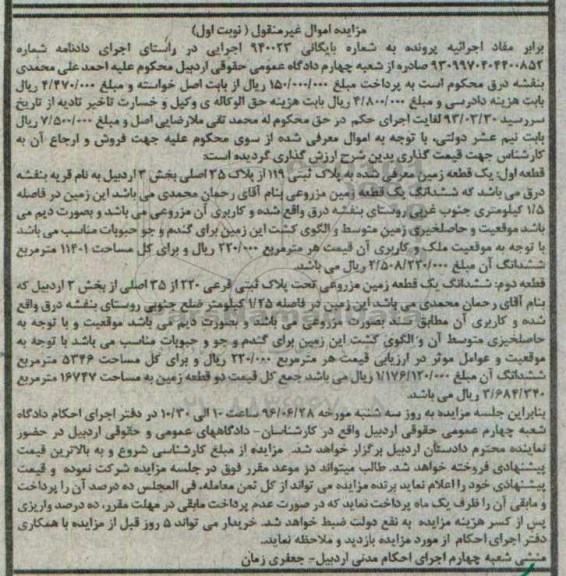 مزایده اموال غیرمنقول ( نوبت اول)
برابر مفاد اجرائیه پرونده به شماره بایگانی ۹۴۰۰۲۳ اجرایی در راستای اجرای دادنامه شماره
۹۳۰۹۹۷۰۴۰۴۴۰۰۸۵۲ صادره از شعبه چهارم دادگاه عمومی حقوقی اردبیل محکوم علیه احمد علی محمدی
بنفشه درق محکوم است به پرداخت مبلغ ۱۵۰/۰۰۰/۰۰۰ ریال از بابت اصل خواسته و مبلغ ۴/۴۷۰/۰۰۰ ریال
بابت هزینه دادرسی و مبلغ ۴/۸۰۰/۰۰۰ ریال بابت هزینه حق الوکاله ی وکیل و خسارت تاخیر تادیه از تاریخ
سررسید ۹۳/۰۲/۳۰ لغایت اجرای حکم در حق محکوم له محمد تقی ملارضایی اصل و مبلغ ۷/۵۰۰/۰۰۰ ریال
بابت نیم عشر دولتی، با توجه به اموال معرفی شده از سوی محکوم علیه جهت فروش و ارجاع آن به
کارشناس جهت قیمت گذاری بدین شرح ارزش گذاری گردیده است:
قطعه اول: یک قطعه زمین معرفی شده به پلاک ثبتی ۱۱۹ از پلاک ۳۵ اصلی بخش ۳ اردبیل به نام قریه بنفشه
درق می باشد که ششدانگ یک قطعه زمین مزروعی بنام آقای رحمان محمدی می باشد این زمین در فاصله
۱/۵ کیلومتری جنوب غربی روستای بنفشه درق واقع شده و کاربری آن مزروعی می باشد و بصورت دیم می
باشد موقعیت و حاصلخیزی زمین متوسط و الگوی کشت این زمین برای گندم و جو حبوبات مناسب می باشد
با توجه به موقعیت ملک و کاربری آن قیمت هر مترمربع ۲۲۰/۰۰۰ ریال و برای کل مساحت ۱۱۴۰۱ مترمربع
ششدانگ آن مبلغ ۲/۵۰۸/۲۲۰/۰۰۰ ریال می باشد.
قطعه دوم: ششدانگ یک قطعه زمین مزروعی تحت پلاک ثبتی فرعی ۲۲۰ از ۳۵ اصلی از بخش ۳ اردبیل که
بنام آقای رحمان محمدی می باشد این زمین در فاصله ۱/۲۵ کیلومتر ضلع جنوبی روستای بنفشه درق واقع
شده و کاربری آن مطابق سند بصورت مزروعی می باشد و بصورت دیم می باشد موقعیت و با توجه به
حاصلخیزی متوسط آن و الگوی کشت این زمین برای گندم و جو و حبوبات مناسب می باشد با توجه به
موقعیت و عوامل موثر در ارزیابی قیمت هر مترمربع ۲۲۰/۰۰۰ ریال و برای کل مساحت ۵۳۴۶ مترمربع
ششدانگ آن مبلغ ۱/۱۷۶/۱۲۰/۰۰۰ ریال می باشد جمع کل قیمت دو قطعه زمین به مساحت ۱۶۷۴۷ مترمربع
۳/۶۸۴/۳۴۰ ریال می باشد.
بنابراین جلسه مزایده به روز سه شنبه مورخه ۹۶/۰۶/۲۸ ساعت ۱۰ الی ۱۰/۳۰ در دفتر اجرای احکام دادگاه
شعبه چهارم عمومی حقوقی اردبیل واقع در کارشناسان- دادگاههای عمومی و حقوقی اردبیل در حضور
نماینده محترم دادستان اردبیل برگزار خواهد شد. مزایده از مبلغ کارشناسی شروع و به بالاترین قیمت
پیشنهادی فروخته خواهد شد. طالب میتواند در موعد مقرر فوق در جلسه مزایده شرکت نموده و قیمت
پیشنهادی خود را اعلام نماید برنده مزایده می تواند از کل ثمن معامله، فی المجلس ده درصد آن را پرداخت
و مابقی آن را ظرف یک ماه پرداخت نماید که در صورت عدم پرداخت مابقی در مهلت مقرر، ده درصد واریزی
پس از کسر هزینه مزایده به نفع دولت ضبط خواهد شد. خریدار می تواند ۵ روز قبل از مزایده با همکاری
دفتر اجرای احکام از مورد مزایده بازدید و ملاحظه نمایند.
منشی شعبه چهارم اجرای احکام مدنی اردبیل- جعفری زمان